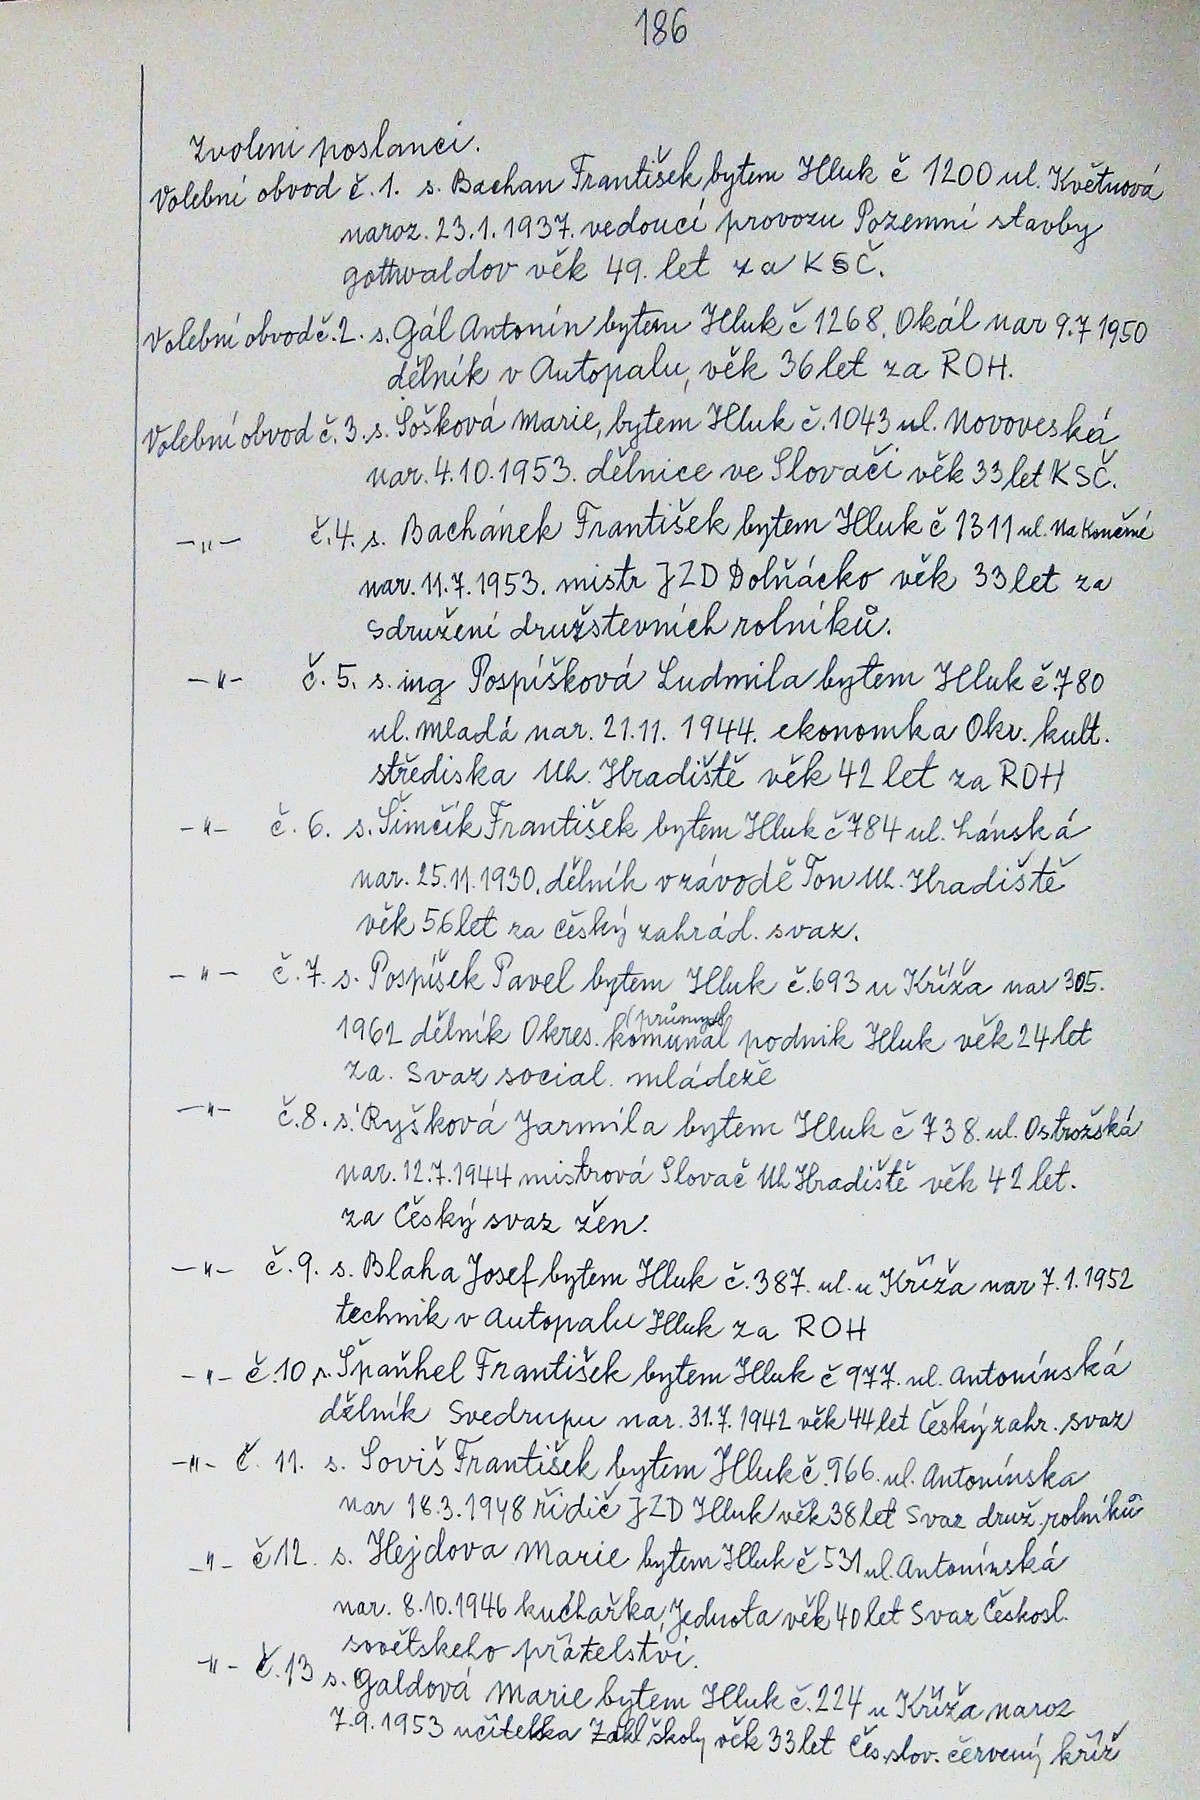 186
Zvoleni poslanci.
Volební obvod č.1. s. Bachan František bytem Hluk č 1200 ul. Květnová
naroz. 23.1.1937. vedoucí provozu Pozemní stavby
Gottwaldov věk 49. let za KSČ.
Volební obvod č.2. s. Gál Antonín bytem Hluk č 1268, Okál nar 9.7 1950
dělník v Autopalu, věk 36 let za ROH.
Volební obvod č.3. s. Šošková Marie, bytem Hluk č.1043 ul. Novoveská
nar. 4.10.1953. dělnice ve Slovači věk 33 let KSČ.
-"- č.4. s. Bachánek František bytem Hluk č 1311 ul. Na Končině
nar. 11.7.1953. mistr JZD Dolňácko věk 33 let za
Sdružení družstevních rolníků.
-"- č.5. s. ing Pospíšková Ludmila bytem Hluk č.780
ul. Mladá nar. 21.11. 1944. ekonomka Okr. kult.
střediska Uh. Hradiště věk 42 let za ROH
-"- č.6. s. Šimčík František bytem Hluk č 784 ul. Lánská
nar. 25.11.1930. dělník v závodě Ton Uh. Hradiště
věk 56 let za Český zahrád. svaz.
-"- č.7. s. Pospíšek Pavel bytem Hluk č.693 u Kříža nar 30 5.
(průmysl
1962 dělník Okres. komunal podnik Hluk věk 24 let
za. Svaz social. mládeže
-"- č.8. s. Ryšková Jarmila bytem Hluk č 738. ul. Ostrožská
nar. 12.7.1944 mistrová Slovač Uh Hradiště věk 42 let.
za Český svaz žen.
-"- č.9. s. Blaha Josef bytem Hluk č.387. ul. u Kříža nar 7.1.1952
technik v Autopalu Hluk za ROH
-"- č.10 s. Špaňhel František bytem Hluk č 977. ul. Antonínská
dělník Svedrupu nar. 31.7.1942 věk 44 let Český zahr. svaz
-"- č. 11. s. Soviš František bytem Hluk č.966. ul. Antonínska
nar 18.3.1948 řidič JZD Hluk věk 38 let Svaz druž. rolníků
-"- č 12. s. Hejdova Marie bytem Hluk č 531 ul. Antonínská
nar. 8.10.1946 kuchařka, Jednota věk 40 let Svaz Českosl.
sovětskeho přátelství.
-"- č.13 s. Galdová Marie bytem Hluk č.224 u Kříža naroz
7.9.1953 učitelka Zákl školy věk 33 let Čes.slov. červený kříž